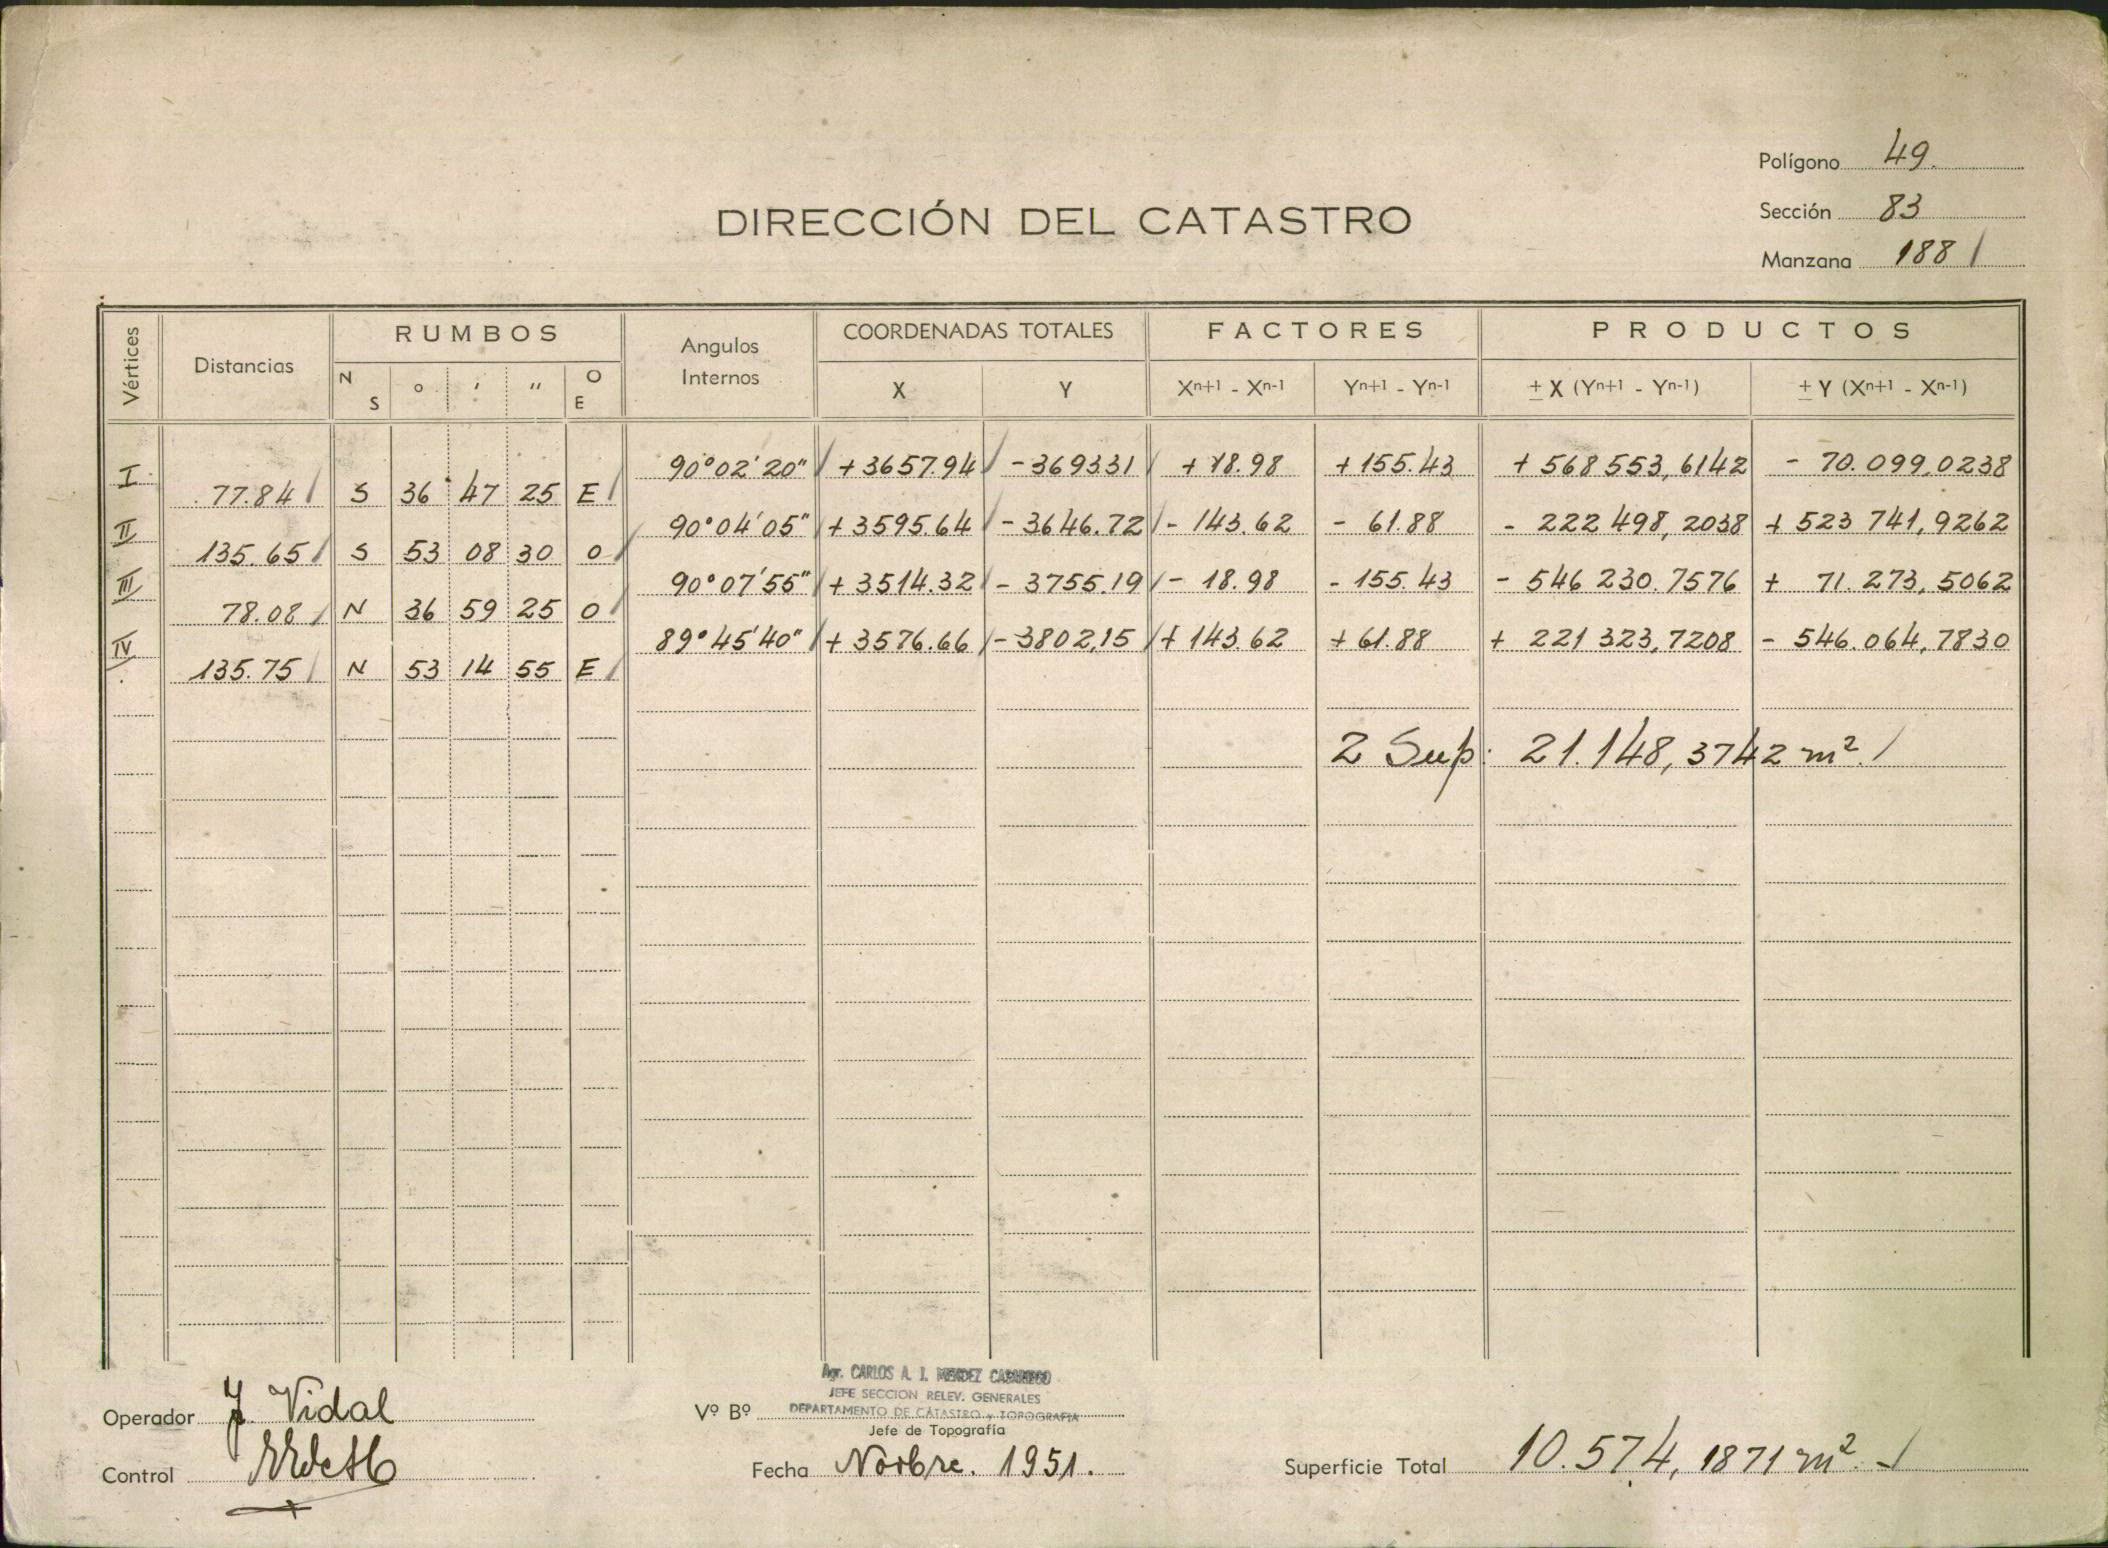 Polígono 49.
Sección 83
Manzana 188
DIRECCIÓN DEL CATASTRO
Vértices Distancias RUMBOS Angulos Internos COORDENADAS TOTALES FACTORES PRODUCTOS
N S ° ' " O E X Y Xn+1 - Xn-1 Yn+1 - Yn-1 ± X (Yn+1 - Yn-1) ± Y (Xn+1 - Xn-1)
I 90°02'20" +3657.94 -3693.31 +18.98 +155.43 +568553,6142 -70.099,0238
77.84 S 36 47 25 E
II 90°04'05" +3595.64 -3646.72 -143.62 -61.88 -222498,2038 +523741,9262
135.65 S 53 08 30 O
III 90°07'55" +3514.32 -3755.19 -18.98 -155.43 -546230.7576 +71.273,5062
78.08 N 36 59 25 O
IV 89°45'40" +3576.66 -3802,15 +143.62 +61.88 +221323,7208 -546.064,7830
135.75 N 53 14 55 E
2 Sup: 21.148,3742 m²
Agr. CARLOS A. J. MENDEZ
JEFE SECCION RELEV. GENERALES
DEPARTAMENTO DE CATASTRO y TOPOGRAFIA
Operador J. Vidal Vº Bº
Jefe de Topografía
Control Fecha Novbre. 1951. Superficie Total 10.574,1871 m²